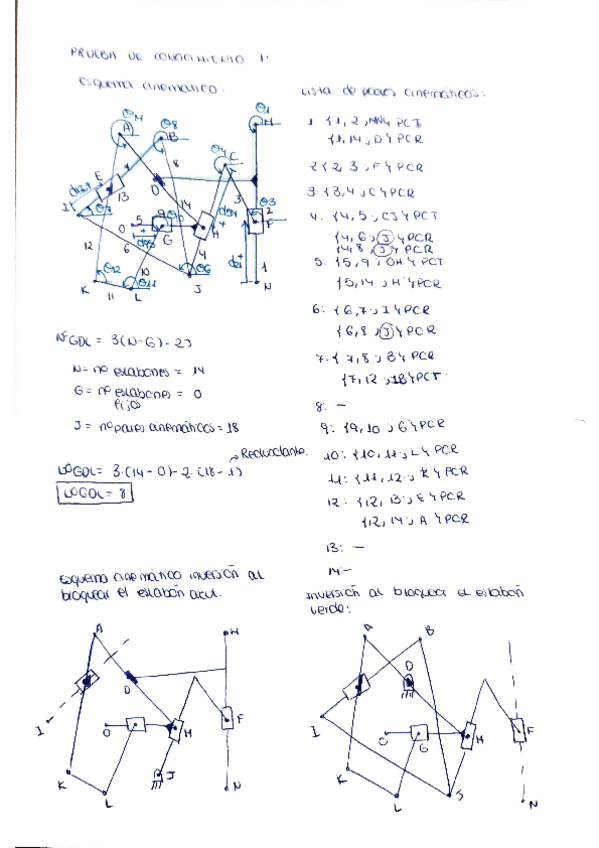 PRUEBA DE CONOCIMIENTO 1:
Esquema cinemático:
θM
A
θ8
B
8
θ1
M
θ4
C
E
13
D
14
3
θ3
2
F
I
θ7
O
5
G
H
4
12
6
10
θ12
θ11
θ6
1
K
11
L
J
N
NºGDL = 3(N-G)-2J
N = nº eslabones = 14
G = nº eslabones = 0
fijos
J = nº pares cinemáticos = 18
Redundante.
NºGDL = 3·(14-0)-2·(18-1)
NºGDL = 8
Lista de pares cinemáticos:
1 {1,2; MN} PCT
{1,14; D} PCR
2 {2,3; F} PCR
3 {3,4; C} PCR
4. {4,5; CJ} PCT
{4,6; J} PCR
{4,8; J} PCR
5: {5,9; OH} PCT
{5,14; H} PCR
6: {6,7; I} PCR
{6,8; J} PCR
7. {7,8; B} PCR
{7,12; IB} PCT
8: -
9: {9,10; G} PCR
10: {10,11; L} PCR
11: {11,12; K} PCR
12: {12,13; E} PCR
{12,14; A} PCR
13: -
14-
Esquema cinemático inversión al
bloquear el eslabón azul.
A
M
D
I
O
H
F
J
K
L
N
Inversión al bloquear el eslabón
verde:
A
B
D
I
O
G
H
F
K
L
J
N